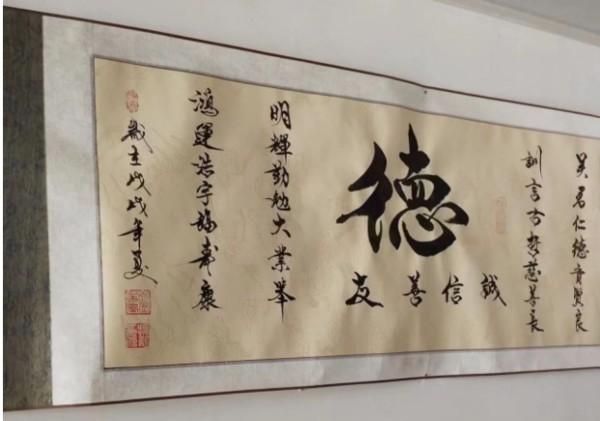 君仁德賢良
訓言古哲慈善長
德
誠信善友
明輝勤勉大業舉
鴻運浩宇福壽康
歲在戊戌年夏